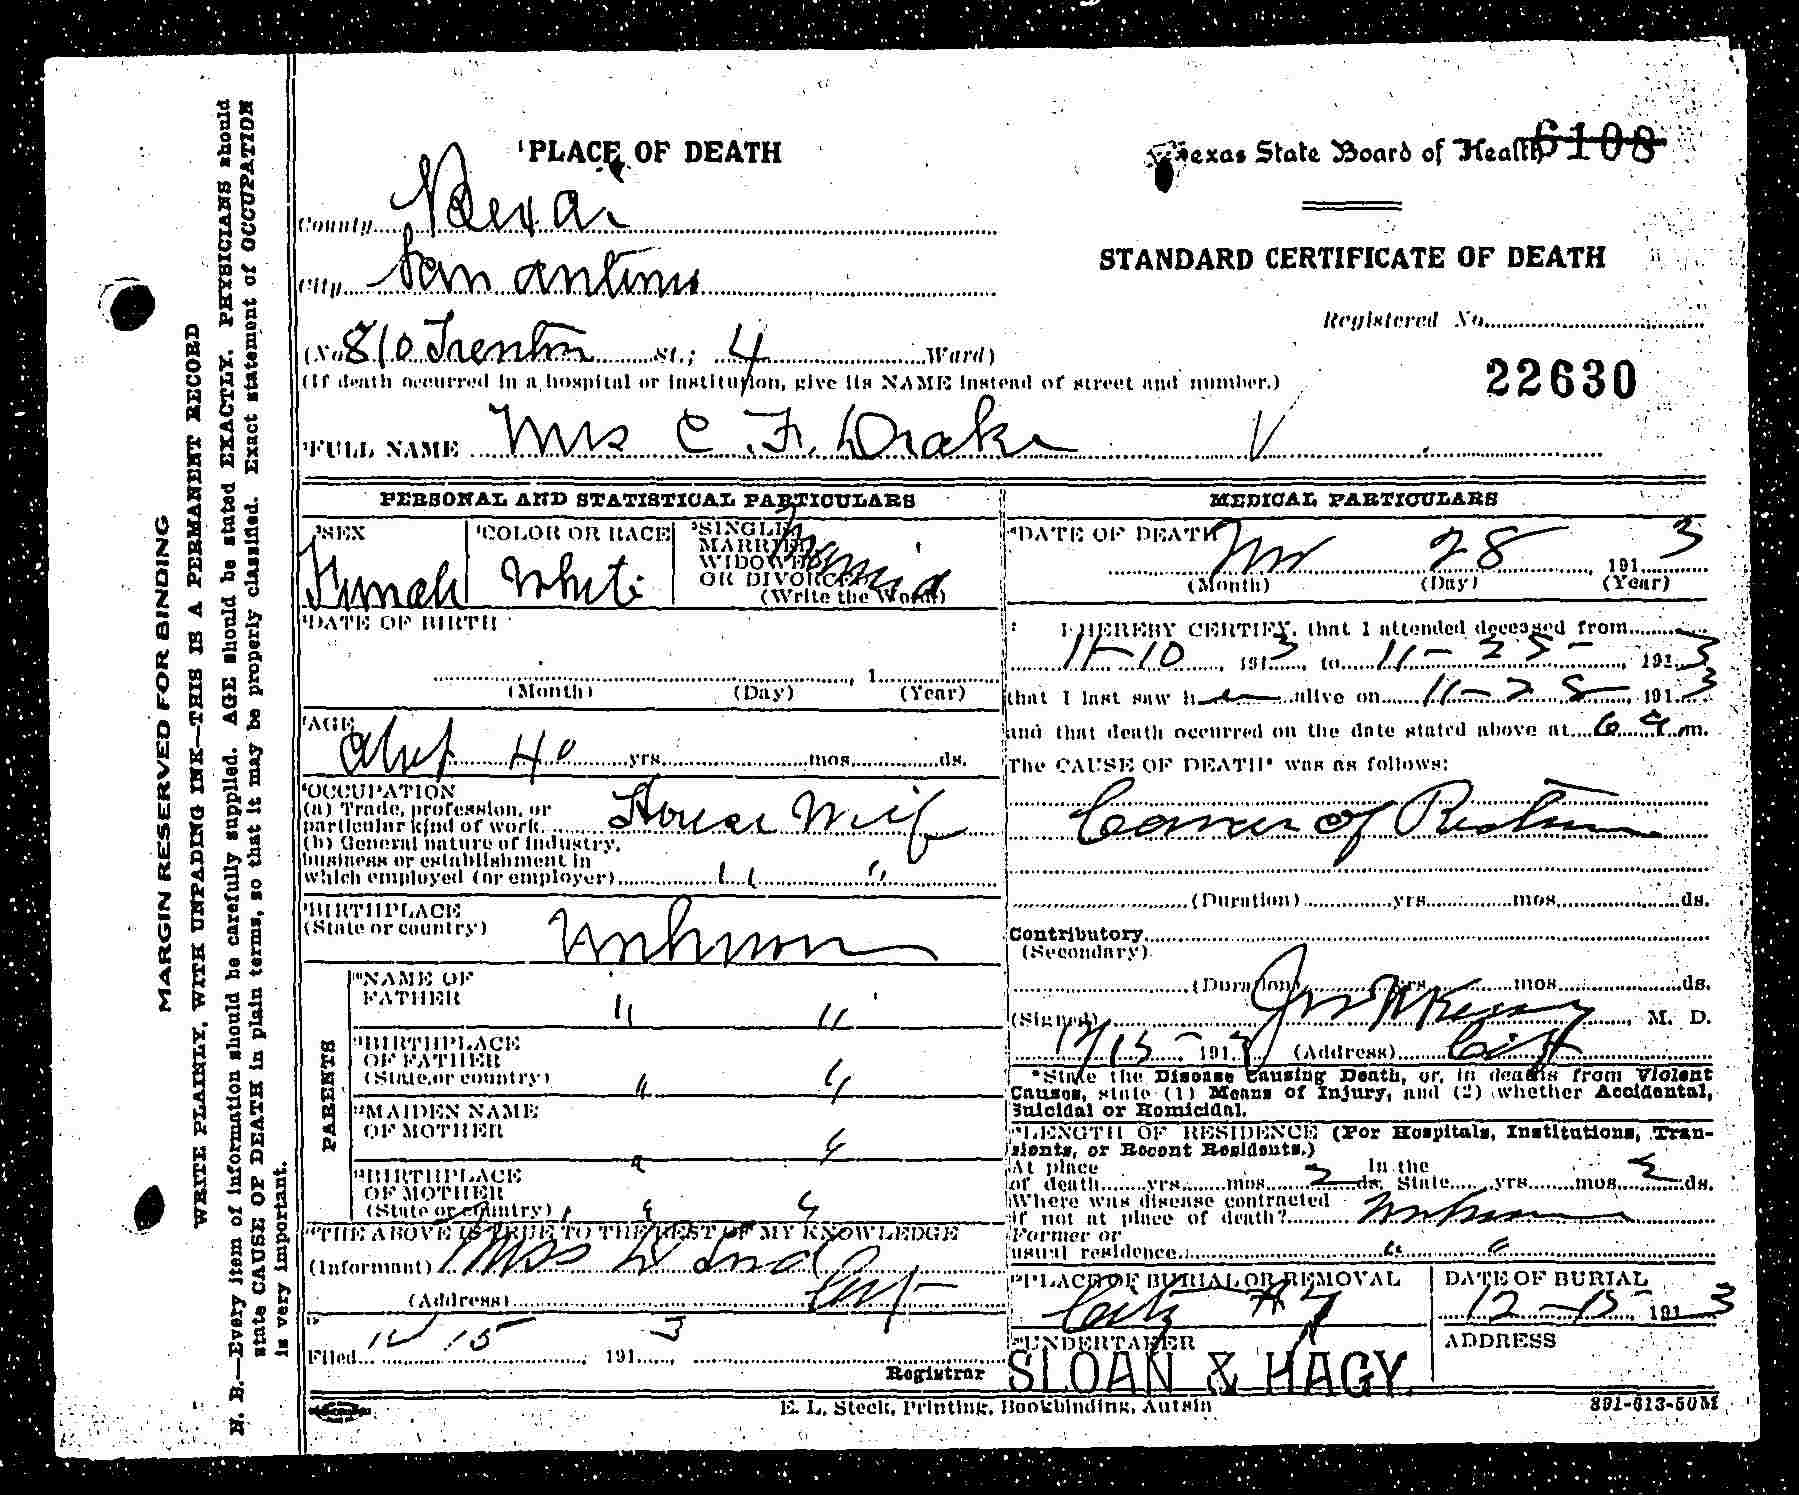 MARGIN RESERVED FOR BINDING
WRITE PLAINLY, WITH UNFADING INK—THIS IS A PERMANENT RECORD
N. B.—Every item of information should be carefully supplied. AGE should be stated EXACTLY. PHYSICIANS should
state CAUSE OF DEATH in plain terms, so that it may be properly classified. Exact statement of OCCUPATION
is very important.
PLACE OF DEATH
Texas State Board of Health 6108
County Bexar
STANDARD CERTIFICATE OF DEATH
City San Antonio
Registered No.
(No 810 Trenton St.; 4 Ward)
(If death occurred in a hospital or institution, give its NAME instead of street and number.)
22630
FULL NAME Mrs C. F. Drake
PERSONAL AND STATISTICAL PARTICULARS
SEX Female
COLOR OR RACE White
SINGLE
MARRIED
WIDOWED
OR DIVORCED
(Write the Word) Married
DATE OF BIRTH
, 1
(Month) (Day) (Year)
AGE
Abt 40 yrs. mos. ds.
OCCUPATION
(a) Trade, profession, or
particular kind of work House Wife
(b) General nature of industry,
business or establishment in
which employed (or employer) " "
BIRTHPLACE
(State or country) Unknown
PARENTS
NAME OF
FATHER " "
BIRTHPLACE
OF FATHER
(State or country) " "
MAIDEN NAME
OF MOTHER " "
BIRTHPLACE
OF MOTHER
(State or country) " "
THE ABOVE IS TRUE TO THE BEST OF MY KNOWLEDGE
(Informant) Mrs
(Address) City
Filed 12 15 191 3
Registrar
MEDICAL PARTICULARS
DATE OF DEATH
Nov 28 191 3
(Month) (Day) (Year)
I HEREBY CERTIFY, that I attended deceased from
11-10, 191 3, to 11-25-, 191 3
that I last saw her alive on 11-28-, 191 3
and that death occurred on the date stated above at 6 a m.
The CAUSE OF DEATH* was as follows:
Cancer of Rectum
(Duration) yrs. mos. ds.
Contributory
(Secondary)
(Duration) yrs. mos. ds.
(Signed) , M. D.
12/15-, 191 3 (Address) City
*State the Disease Causing Death, or, in deaths from Violent
Causes, state (1) Means of Injury, and (2) whether Accidental,
Suicidal or Homicidal.
LENGTH OF RESIDENCE (For Hospitals, Institutions, Tran-
sients, or Recent Residents.)
At place In the
of death yrs. mos. 2 ds. State yrs. mos. 2 ds.
Where was disease contracted
if not at place of death? Unknown
Former or
usual residence " "
PLACE OF BURIAL OR REMOVAL
City #7
DATE OF BURIAL
12-15-191 3
UNDERTAKER
SLOAN & HAGY.
ADDRESS
E. L. Steck, Printing, Bookbinding, Austin
891-613-50M